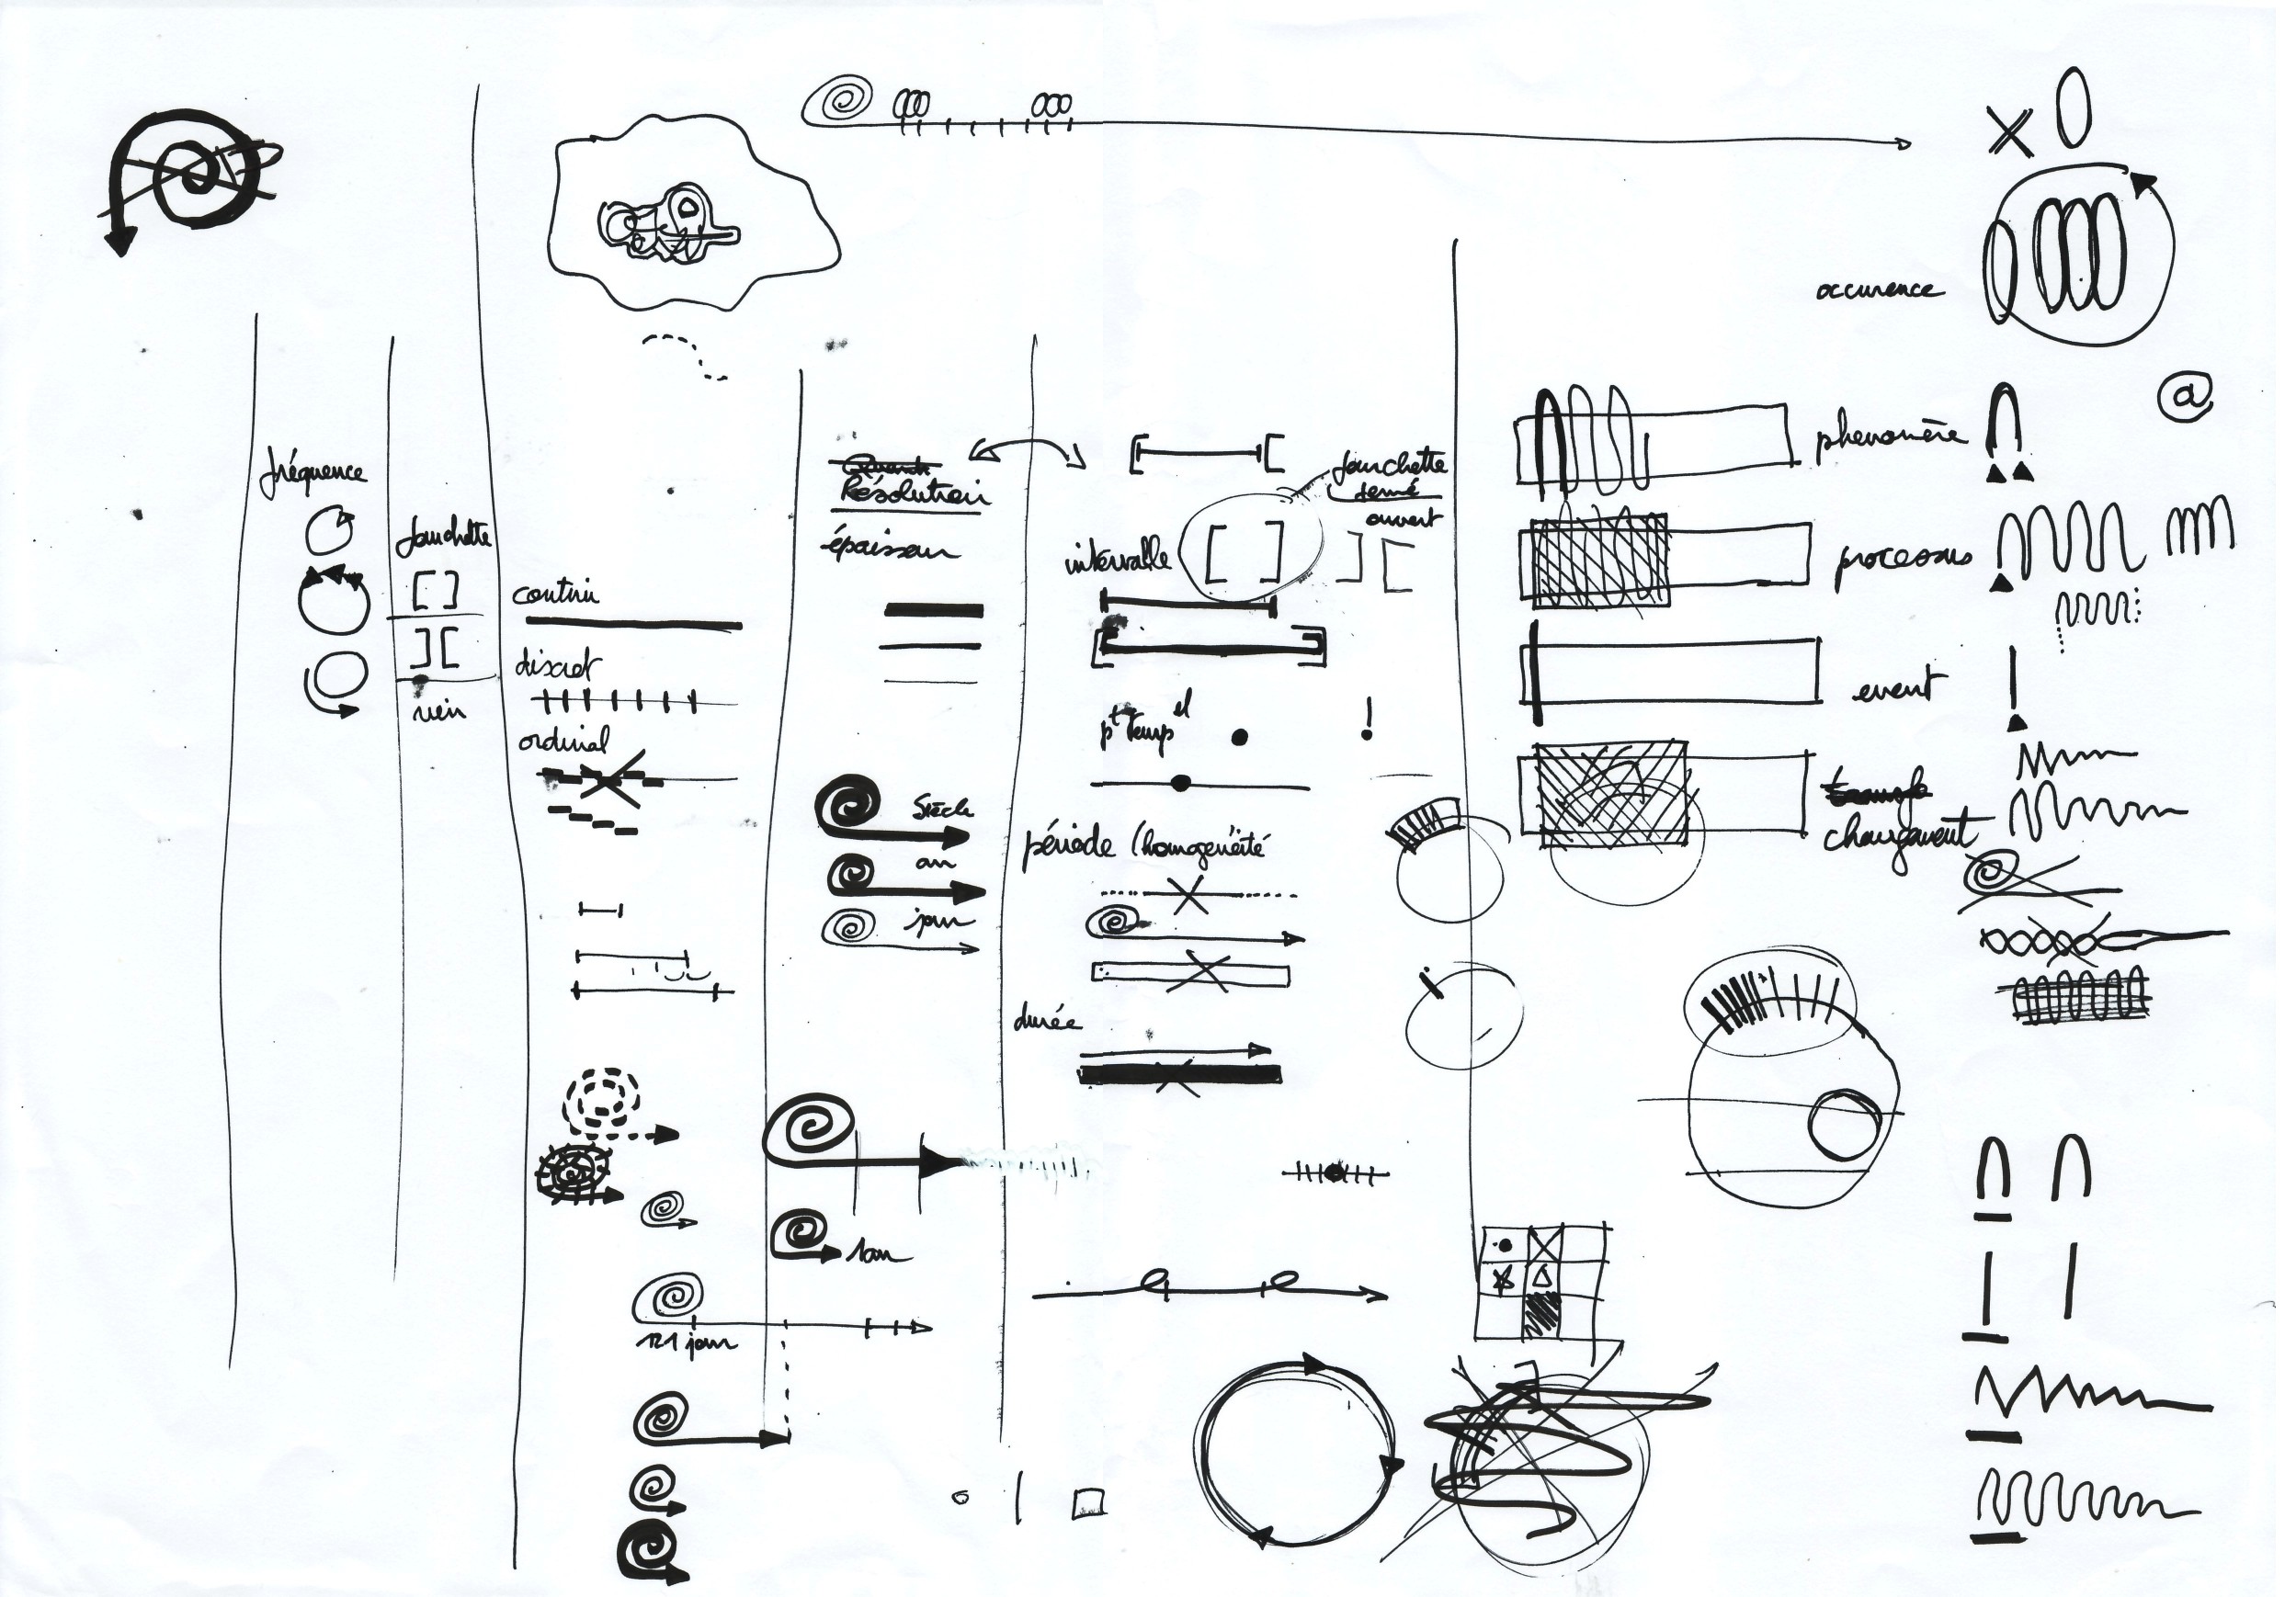 fréquence
fourchette
rien
continu
discret
ordinal
Résolution
épaisseur
Siècle
an
jour
1an
121 jour
fourchette
fermé
ouvert
intervalle
pt temp el
!
période (homogénéité
durée
occurence
@
phenomène
processus
event
changement